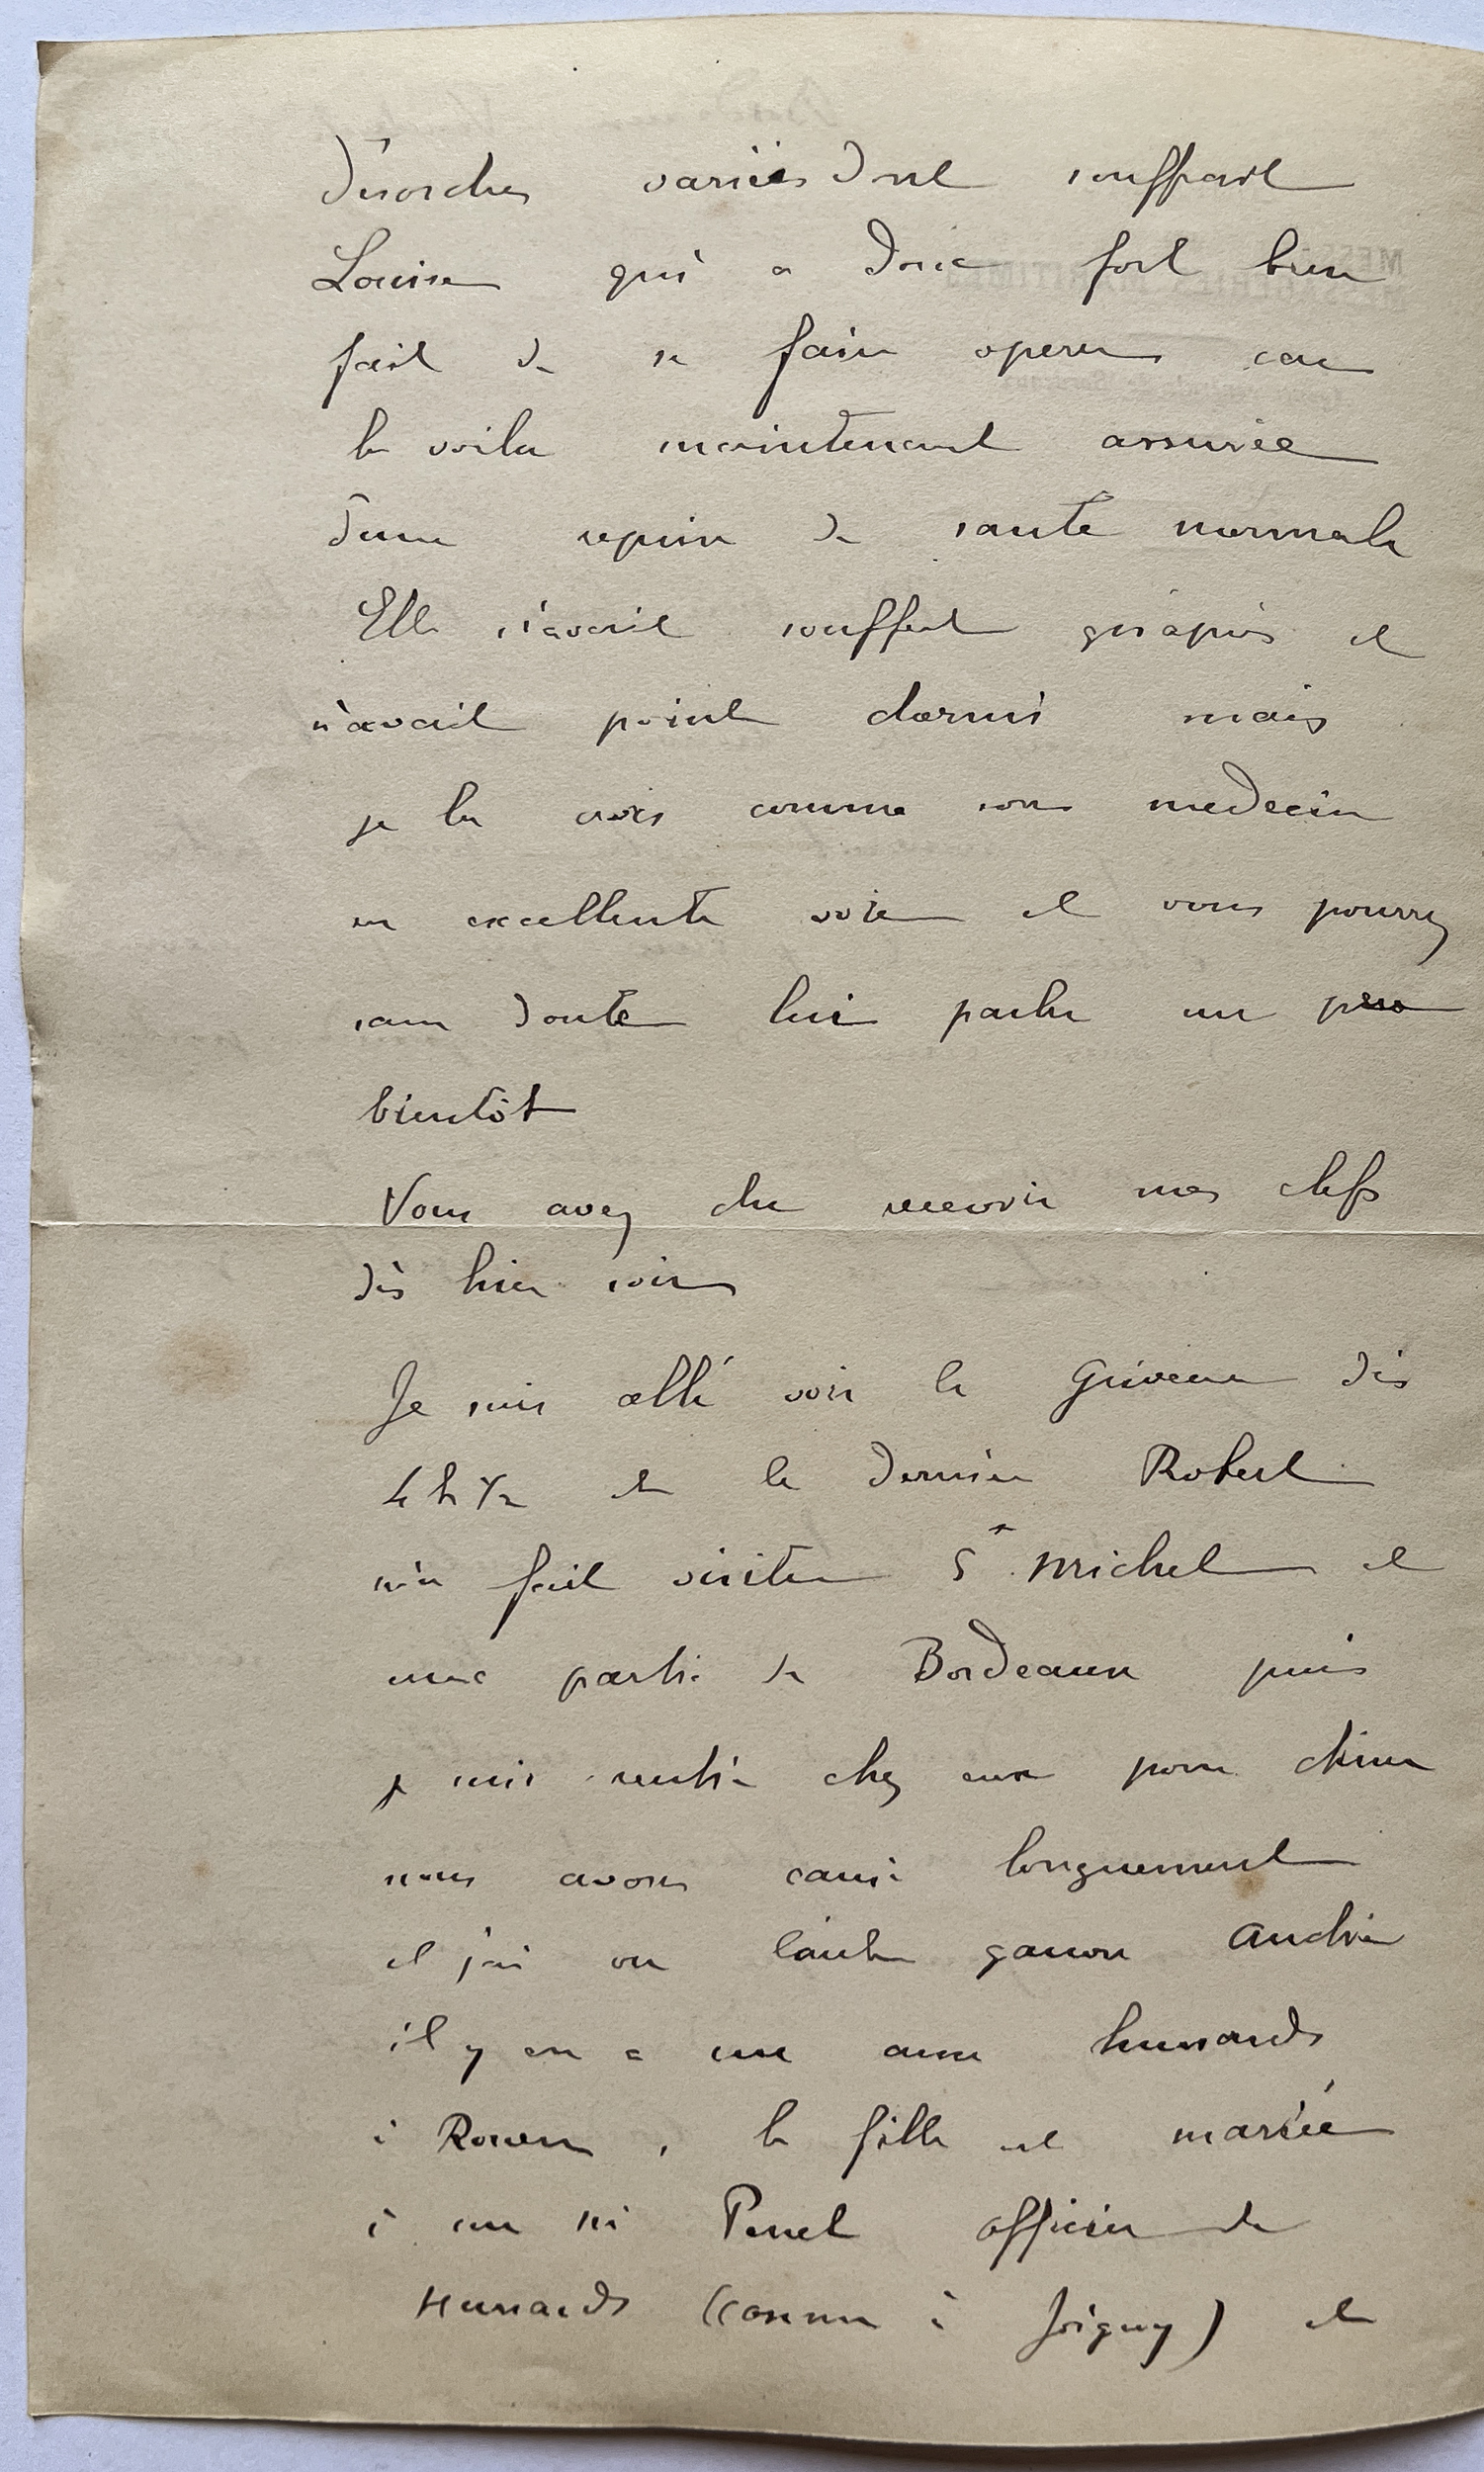 désordres variés dont souffrait
Louise qui a donc fort bien
fait de se faire opérer car
la voilà maintenant assurée
d'une reprise de santé normale
Elle n'avait souffert qu'après et
n'avait point dormi mais
je la crois comme son médecin
en excellente voie et vous pourrez
sans doute lui parler un peu
bientôt
Vous avez du recevoir mes clefs
dès hier soir
Je suis allé voir les Griveau dès
4 h ½ et le dernier Robert
m'a fait visiter St Michel et
une partie de Bordeaux puis
je suis rentré chez eux pour dîner
nous avons causé longuement
et j'ai vu l'autre garçon André
il y en a un aux hussards
à Rouen, la fille est mariée
à un officier de
Hussards (connu à Joigny) et